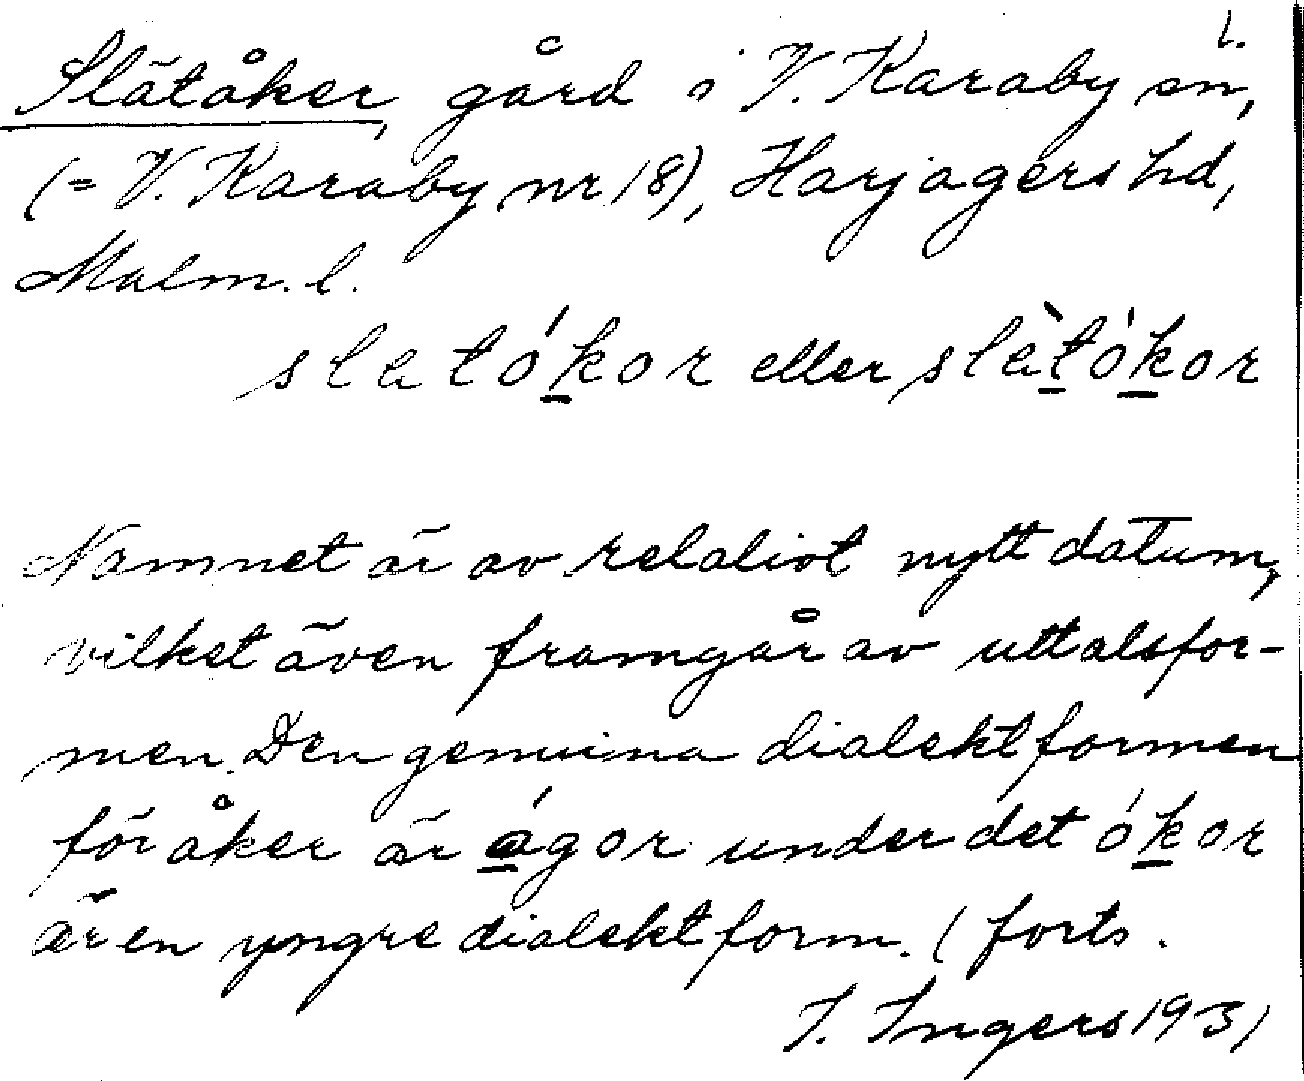 1.
Slätåker, gård i V. Karaby sn,
(= V. Karaby nr 18), Harjagers hd,
Malm. l.
slatókor eller slètókor
Namnet är av relativt nytt datum,
vilket även framgår av uttalsfor-
men. Den genuina dialektformen
för åker är ágor under det ókor
är en yngre dialektform. (forts.
I. Ingers 1931